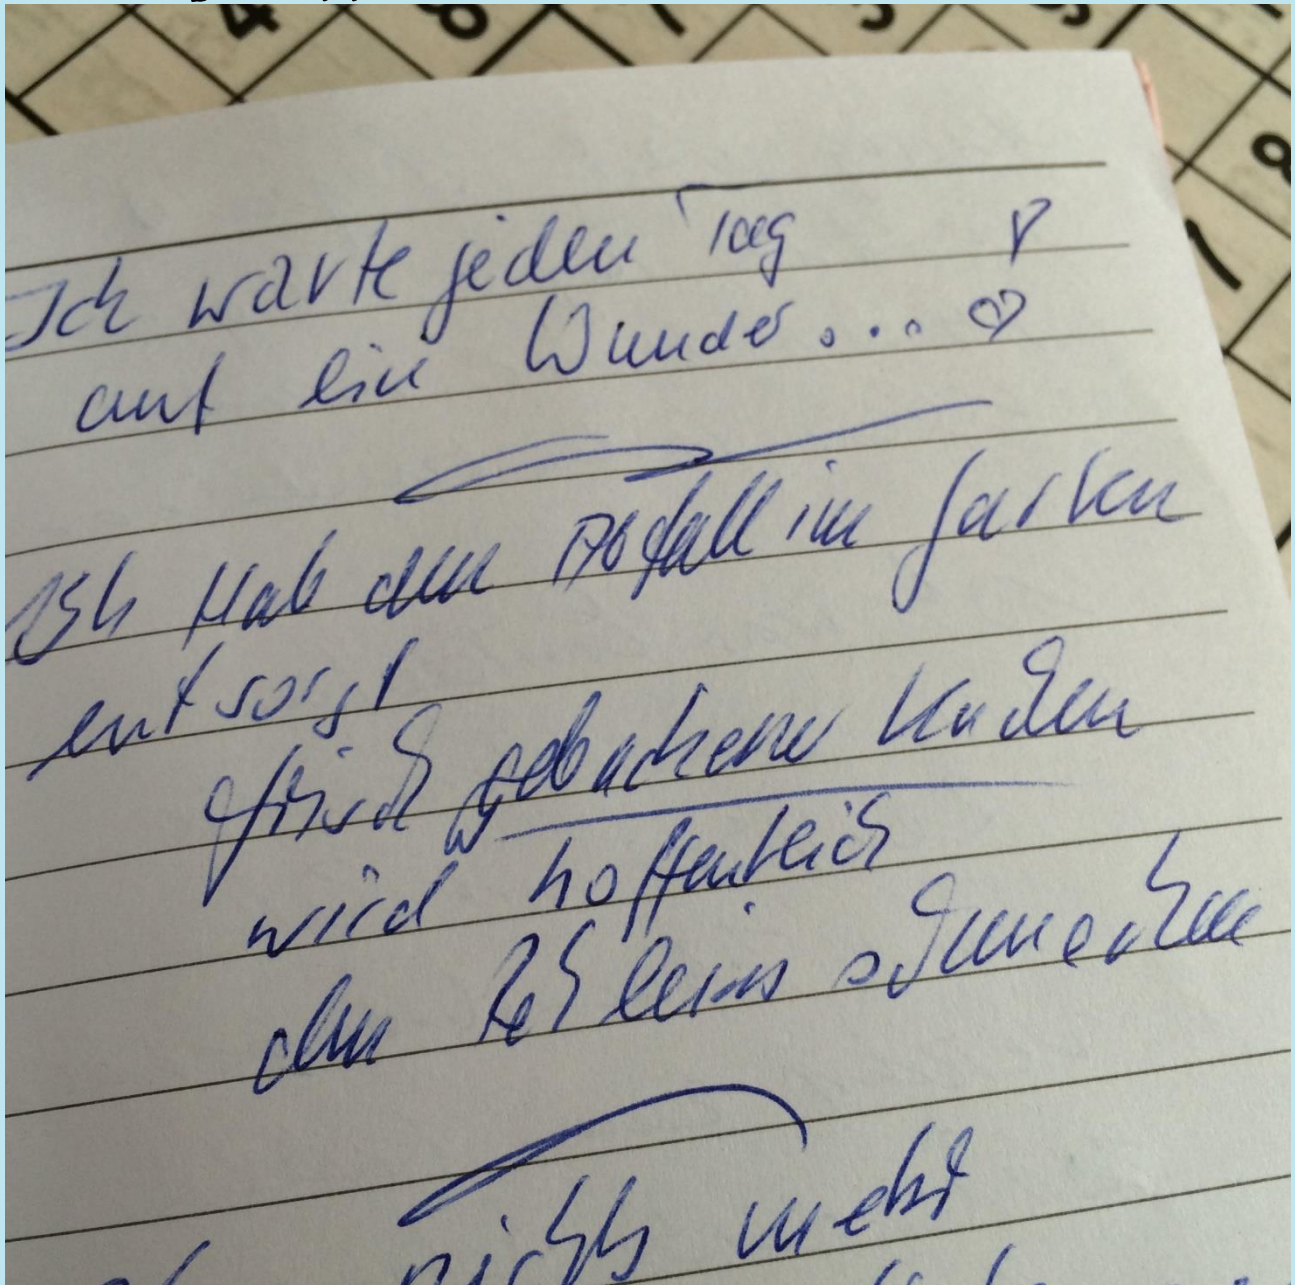 Ich warte jeden Tag
auf ein Wunder...
Ich Hab den Abfall im Garten
entsorgt
frisch gebackener Kuchen
wird hoffentlich
den Rehleins schmecken
nichts mehr